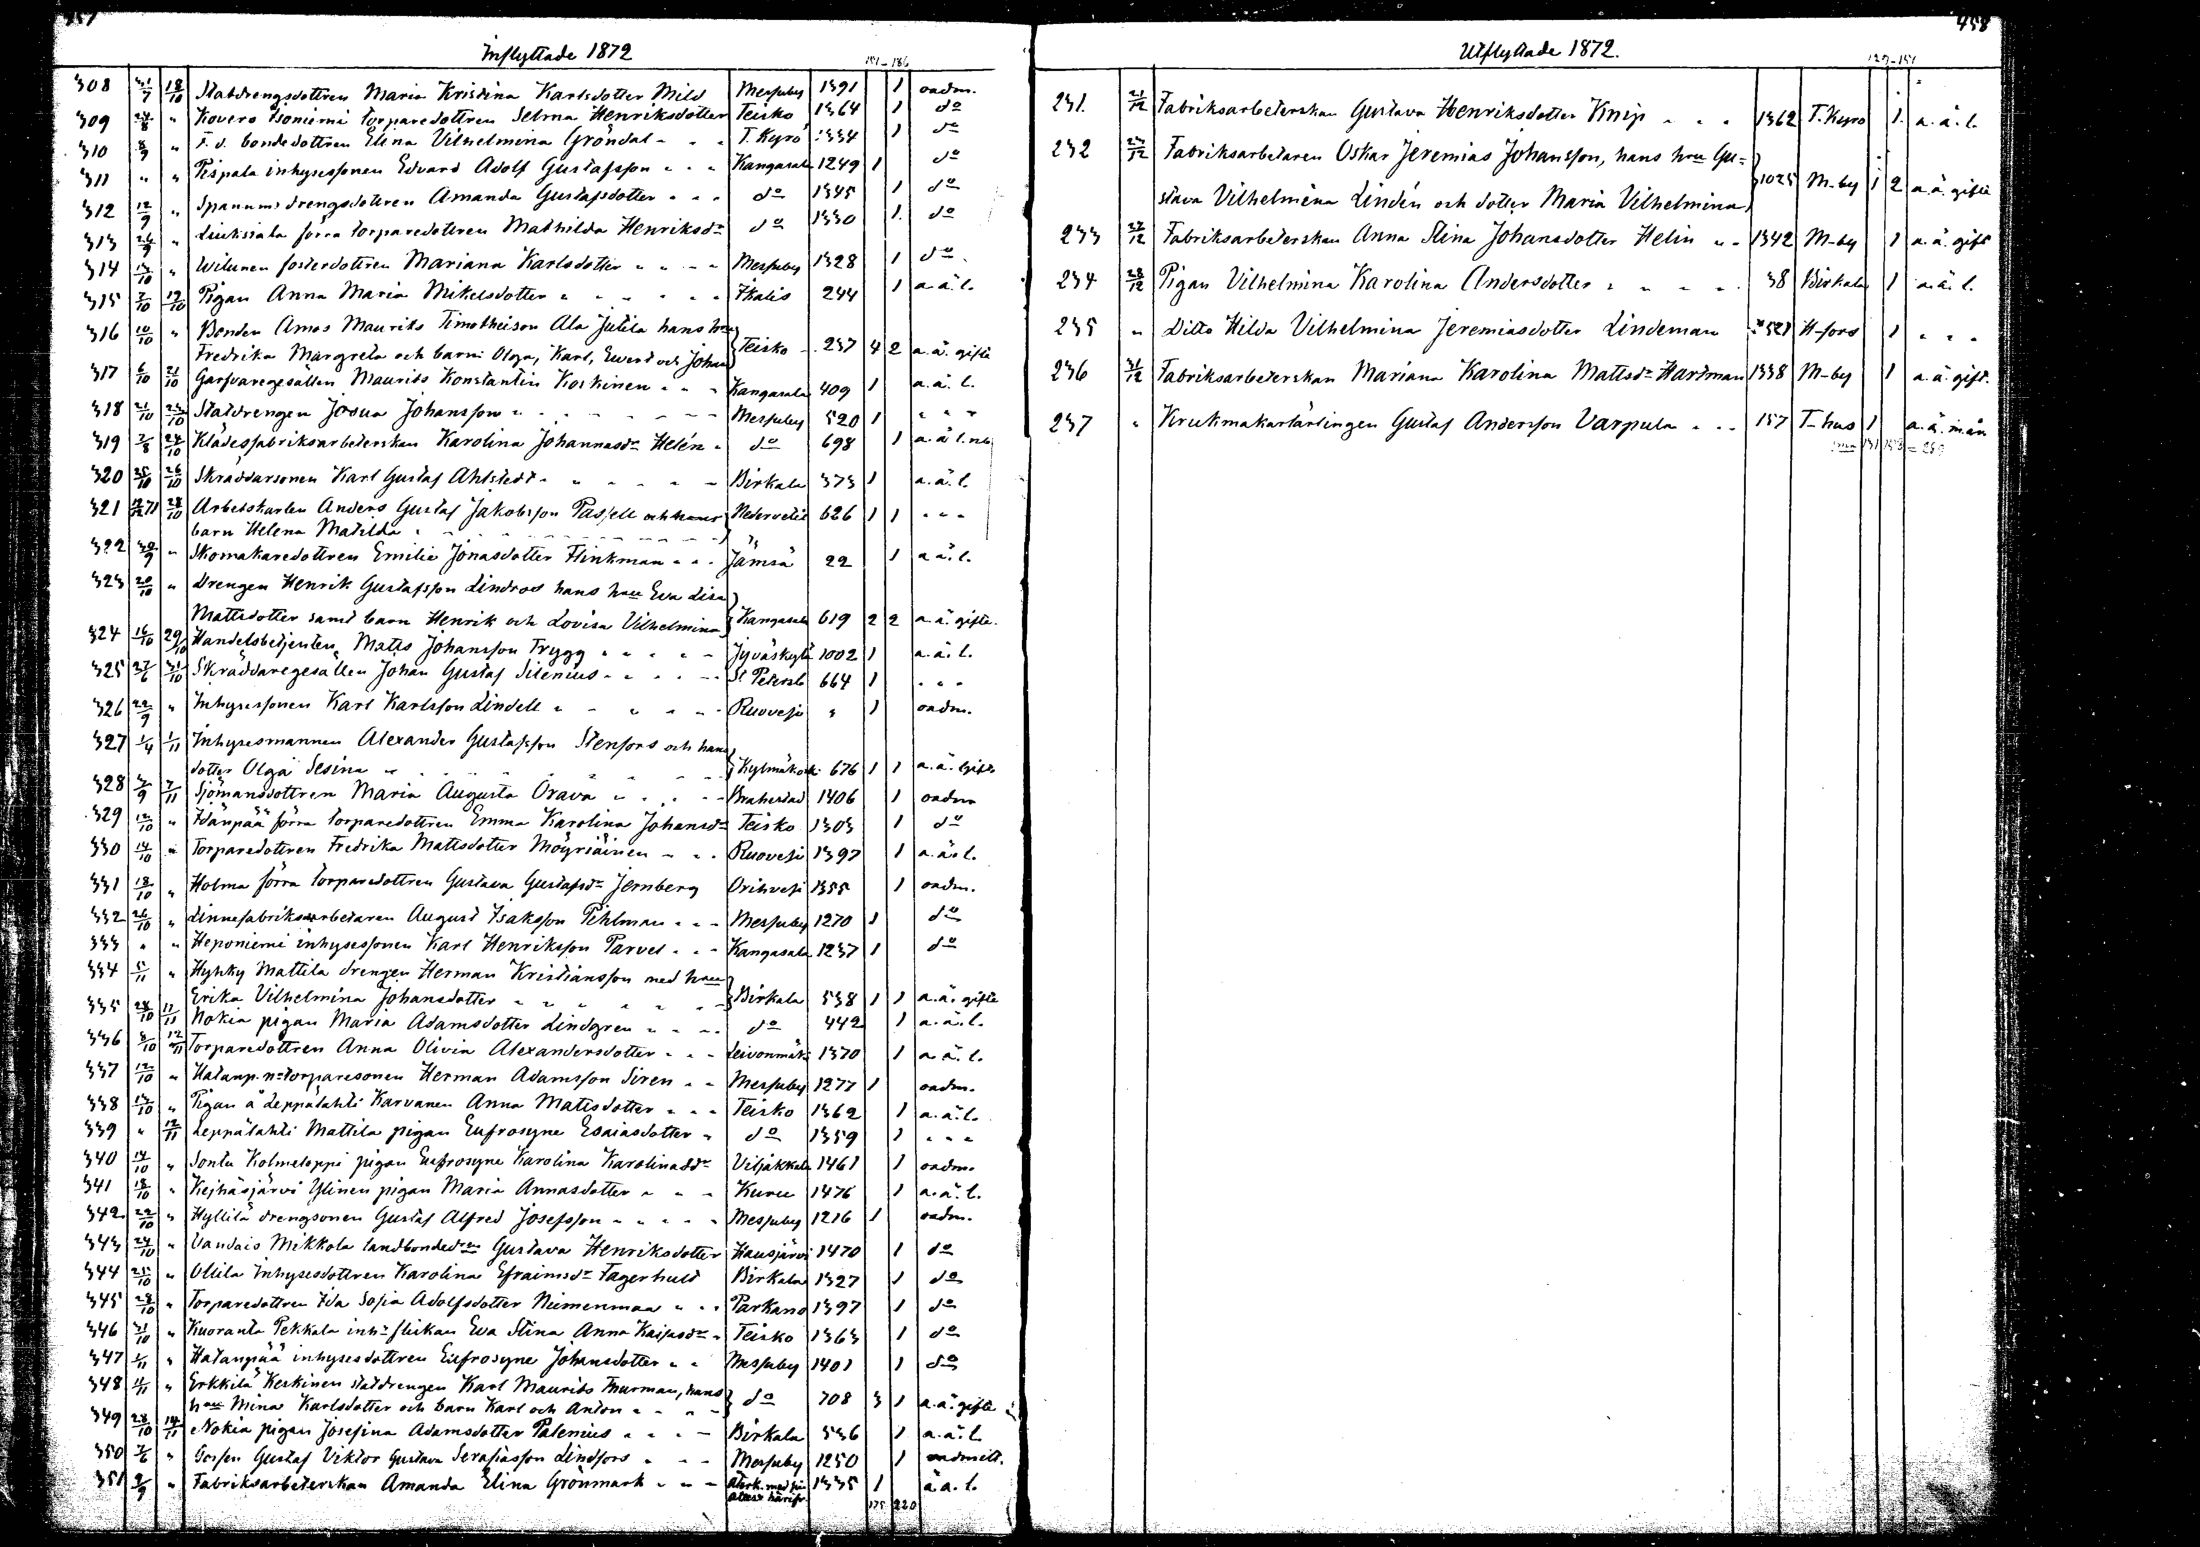 457
Inflyttade 1872
151-186
308 31/7 18/10 Statdrengsdottren Maria Kristina Karlsdotter Mild Messuby 1391 1 oadm.
309 24/8 " Kovero Isoniemi torparedottren Selma Henriksdotter Teisko 1364 1 do
310 8/9 " F. d. bondedottren Elina Vilhelmina Gröndal " " T. Kyro 1334 1 do
311 " " Pispala inhysessonen Edvard Adolf Gustafsson " " " Kangasala 1249 1 do
312 12/9 " drengsdottren Amanda Gustafsdotter " " " do 1345 1 do
313 26/9 " Liuksiala förra torparedottren Mathilda Henriksdr do 1330 1 do
314 13/10 " Wilunen fosterdottren Mariana Karlsdotter " " " " Messuby 1328 1 do
315 7/10 19/10 Pigan Anna Maria Mikelsdotter " " " " " " Ikalis 244 1 a. ä. l.
316 10/10 " Bonden Amos Maurits Timotheison Ala Jutila hans hru
Fredrika Margreta och barn: Olga, Karl, Evert och Johan } Teisko 237 4 2 a. ä. gifte
317 6/10 21/10 Garfvaregesällen Maurits Konstantin Koskinen " " " Kangasala 409 1 a. ä. l.
318 21/10 23/10 Statdrengen Josua Johansson " " " " " " " Messuby 520 1 " " "
319 3/8 24/10 Klädesfabriksarbeterskan Karolina Johannasdr Helén " do 698 1 a. ä. l.
320 25/10 26/10 Skräddarsonen Karl Gustaf Ahlstedt " " " " " " Birkala 373 1 a. ä. l.
321 71 28/10 Arbetskarlen Anders Gustaf Jakobsson Passell och hans
barn Helena Matilda " " " " " " " } Nedervetil 626 1 1 " " "
322 30/9 " Skomakaredottren Emilie Jonasdotter Flinkman " " " Jämsä 22 1 a. ä. l.
323 20/10 " Drengen Henrik Gustafsson Lindroos hans hru Eva Lisa
Mattsdotter samt barn Henrik och Lovisa Vilhelmina } Kangasala 619 2 2 a. ä. gifte.
324 16/10 29/10 Handelsbetjenten Matts Johansson Trygg " " " " " Jyväskylä 1002 1 a. ä. l.
325 27/6 31/10 Skräddaregesällen Johan Gustaf Silenius " " " " " St Petersb 664 1 " " "
326 22/9 " Inhysessonen Karl Karlsson Lindell " " " " " " Ruovesi " 1 oadm.
327 1/4 1/11 Inhysesmannen Alexander Gustafsson Stenfors och hans
dotter Olga Sesina " " " " " " " } Kylmäkoski 676 1 1 a. ä. gifte
328 3/9 7/11 Sjömansdottren Maria Augusta Orava " " " " " Brahestad 1406 1 oadm
329 12/10 " Idänpää förra torparedottren Emma Karolina Johansdr Teisko 1303 1 do
330 14/10 " Torparedottren Fredrika Mattsdotter Möyriäinen " " " Ruovesi 1397 1 a. ä. l.
331 18/10 " Holma förra torparedottren Gustava Gustafsdr Jernberg Orihvesi 1355 1 oadm.
332 26/10 " Linnefabriksarbetaren August Isaksson Pihlman " " " Messuby 1270 1 do
333 " " Heponiemi inhysessonen Karl Henriksson Parvel " " " Kangasala 1237 1 do
334 5/11 " Hyhky Mattila drengen Herman Kristiansson med hru
Erika Vilhelmina Johansdotter " " " " " " } Birkala 538 1 1 a. ä. gifte
335 28/10 11/11 Nokia pigan Maria Adamsdotter Lindgren " " " " do 442 1 a. ä. l.
336 3/10 12/11 Torparedottren Anna Olivia Alexandersdotter " " " Leivonmäki 1370 1 a. ä. l.
337 12/10 " Hatanp. torparesonen Herman Adamsson Siren " " Messuby 1277 1 oadm.
338 13/10 " Pigan å Leppälahti Karvanen Anna Mattsdotter " " " Teisko 1362 1 a. ä. l.
339 " 12/11 Leppälahti Mattila pigan Eufrosyne Esaiasdotter " do 1359 1 " " "
340 14/10 " Sontu Kolmeloppi pigan Eufrosyne Karolina Karolinasdr Viljakkala 1461 1 oadm.
341 18/10 " Keihäsjärvi Ylinen pigan Maria Annasdotter " " " Kuru 1476 1 a. ä. l.
342 22/10 " Hyllilä drengsonen Gustaf Alfred Josefsson " " " " " Messuby 1216 1 oadm.
343 24/10 " Vandais Mikkola landbonded. Gustava Henriksdotter Hausjärvi 1470 1 do
344 25/10 " Ollila Inhysesdottren Karolina Efraimsdr Fagerhuld Birkala 1327 1 do
345 28/10 " Torparedottren Ida Sofia Adolfsdotter Niimenmaa " " " Parkano 1397 1 do
346 31/10 " Kuoranta Pekkala inh: flickan Eva Stina Anna Kaisasdr " Teisko 1363 1 do
347 1/11 " Hatanpää inhysesdottren Eufrosyne Johansdotter " " Messuby 1401 1 do
348 11/11 " Erkkilä Keskinen statdrengen Karl Maurits Thurman, hans
hru Mina Karlsdotter och barn Karl och Anton " " " " } do 708 3 1 a. ä. gifte
349 28/10 14/11 Nokia pigan Josefina Adamsdotter Palenius " " " " Birkala 536 1 a. ä. l.
350 3/6 " Gossen Gustaf Viktor Gustava Serafiasson Lindfors " " " Messuby 1250 1 oadmitt.
351 2/9 " Fabriksarbeterskan Amanda Elina Grönmark " " " återk. med sin attest härifr. 1335 1 a. ä. l.
175 220
458
Utflyttade 1872.
129-151
231. 21/12 Fabriksarbeterskan Gustava Henriksdotter Knip " " " 1362 T. Kyro 1. a. ä. l.
232 23/12 Fabriksarbetaren Oskar Jeremias Johansson, hans hru Gu-
stava Vilhelmina Lindén och dotter Maria Vilhelmina } 1025 M-by 1 2 a. ä. gifte
233 27/12 Fabriksarbeterskan Anna Stina Johansdotter Helin " " 1342 M-by 1 a. ä. gift
234 28/12 Pigan Vilhelmina Karolina Andersdotter " " " " " 38 Birkala 1 a. ä. l.
235 " Ditto Hilda Vilhelmina Jeremiasdotter Lindeman 521 H-fors 1 " " "
236 31/12 Fabriksarbeterskan Mariana Karolina Mattsdr Hartman 1338 M-by 1 a. ä. gift.
237 " Krukmakarlärlingen Gustaf Andersson Varpula " " " 157 T-hus 1 a. ä. män